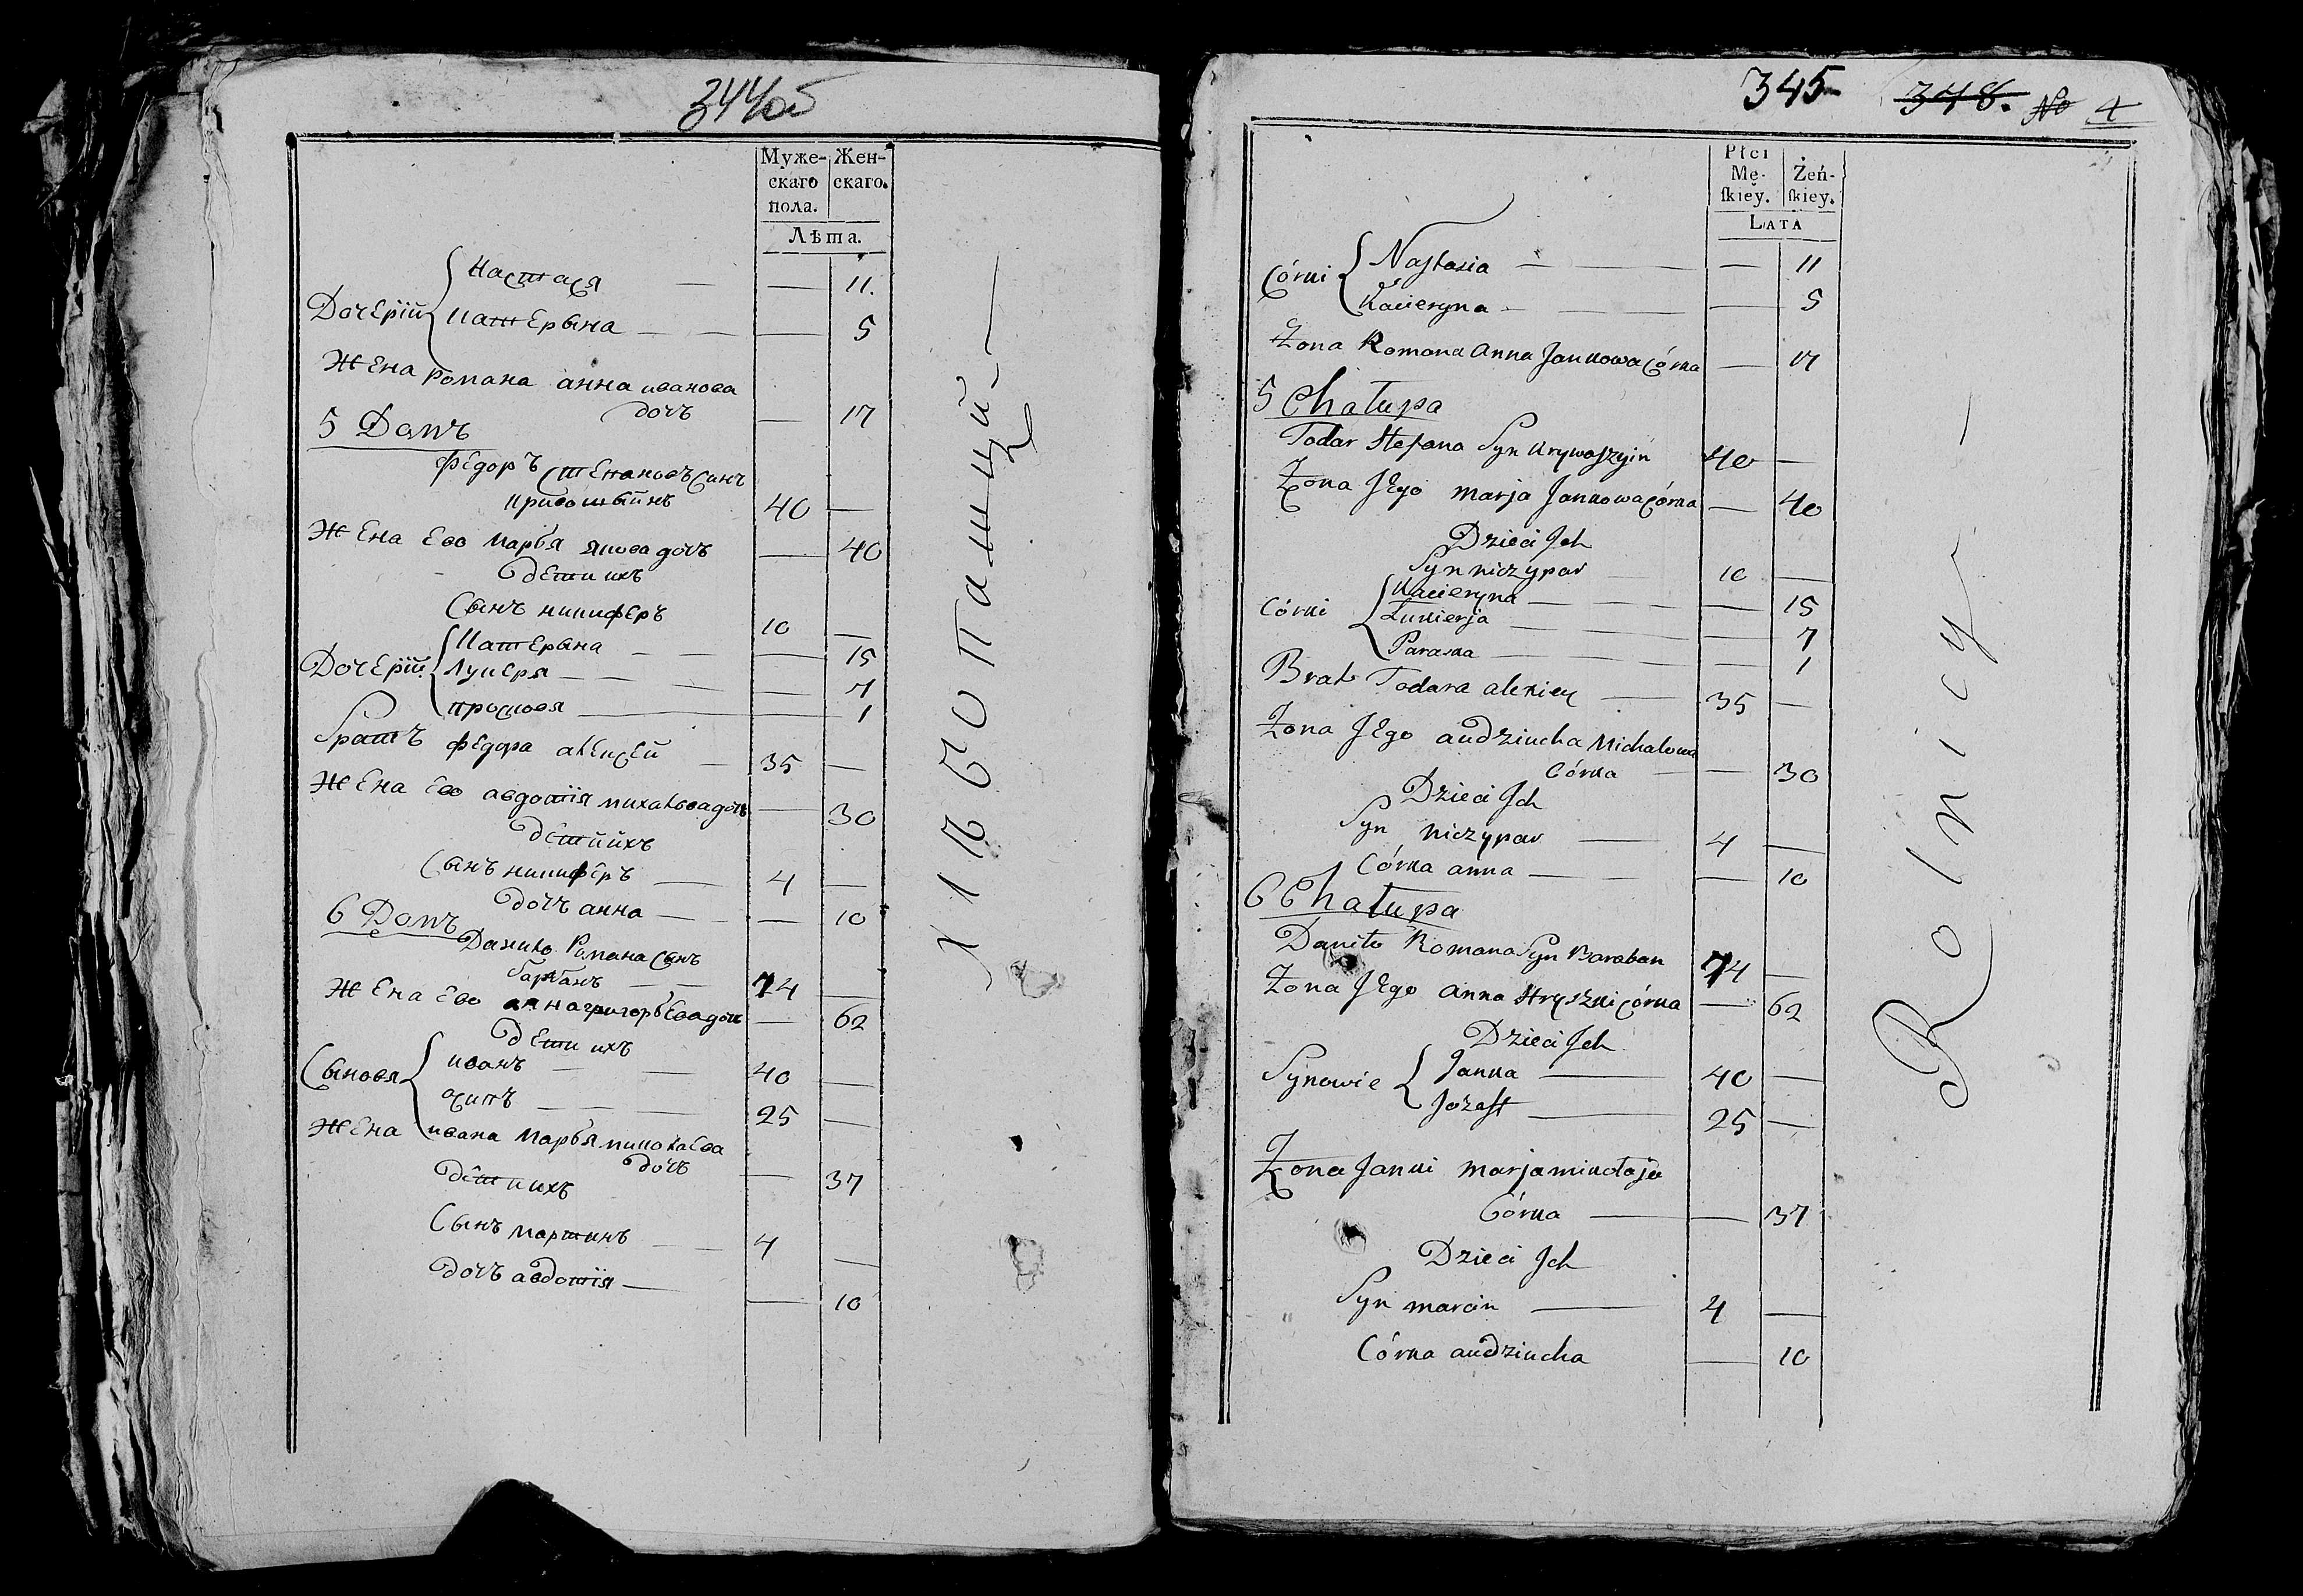 344об
Муже- Жен-
скаго скаго.
пола.
Лѣта.
Настася — — 11.
Дочерій Катерына — — — 5
Жена Романа анна иванова
дочъ — 17
5 Домъ
Федоръ Степановъ Синъ
Кривошыйнъ 40 —
Жена Ево Марья янова дочъ — 40
дети ихъ
Сынъ никиферъ 10 —
Катерына — — — 15
Дочерій Лукеря — — — 7
Просковя — — 1
Братъ Федора алексей — 35 —
Жена Ево авдотія михалова дочъ — 30
дети ихъ
Сынъ никиферъ — 4 —
дочъ анна — — — 10
6 Домъ
Данило Романа Сынъ
барабанъ — 74 —
Жена Ево анна григорьева дочъ — 62
дети ихъ
иванъ — — 40 —
Сыновя
осипъ — — — 25 —
Жена ивана Марья миколаева
дочъ — 37
дети ихъ
Сынъ мартинъ — — 4 —
дочъ авдотія — — 10
Хлѣбопашцы
345 378. No 4
Płci
Mę- Żeń-
ſkiey. ſkiey.
LATA
Córki Nastasia — — — 11
Kacieryna — — — 5
Żona Romana Anna Jankowa Córka — 17
5 Chałupa
Todar Stefana Syn Krywoszyin 40 —
Żona Jego marja Jankowa Córka — 40
Dzieci Jch
Syn niczypar — 10 —
Kacieryna — — — 15
Córki Łukierja — — — 7
Paraska — — — 1
Brat Todara alexiey — 35 —
Żona Jego audziucha Michałowa
Córka — — 30
Dzieci Jch
Syn niczypar — 4 —
Córka anna — — — 10
6 Chałupa
Daniło Romana Syn Baraban 74 —
Żona Jego anna Hryszki Córka — 62
Dzieci Jch
Synowie Janka — 40 —
Jozeff — 25 —
Żona Janki marja mikołaja
Córka — — 37
Dzieci Jch
Syn marcin — 4 —
Córka audziucha — 10
Rolnicy —